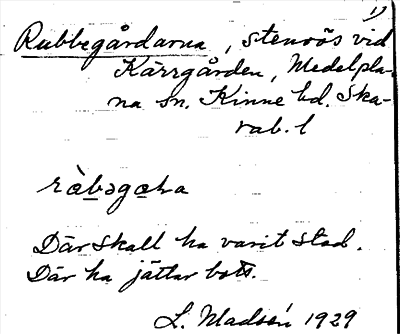 1)
Rubbegårdarna, stenrös vid
Kärrgården, Medelpla-
na sn. Kinne hd. Ska-
rab. l
ràbəgaṇa
Där skall ha varit stad.
Där ha jättar bott.
L. Madsén 1929